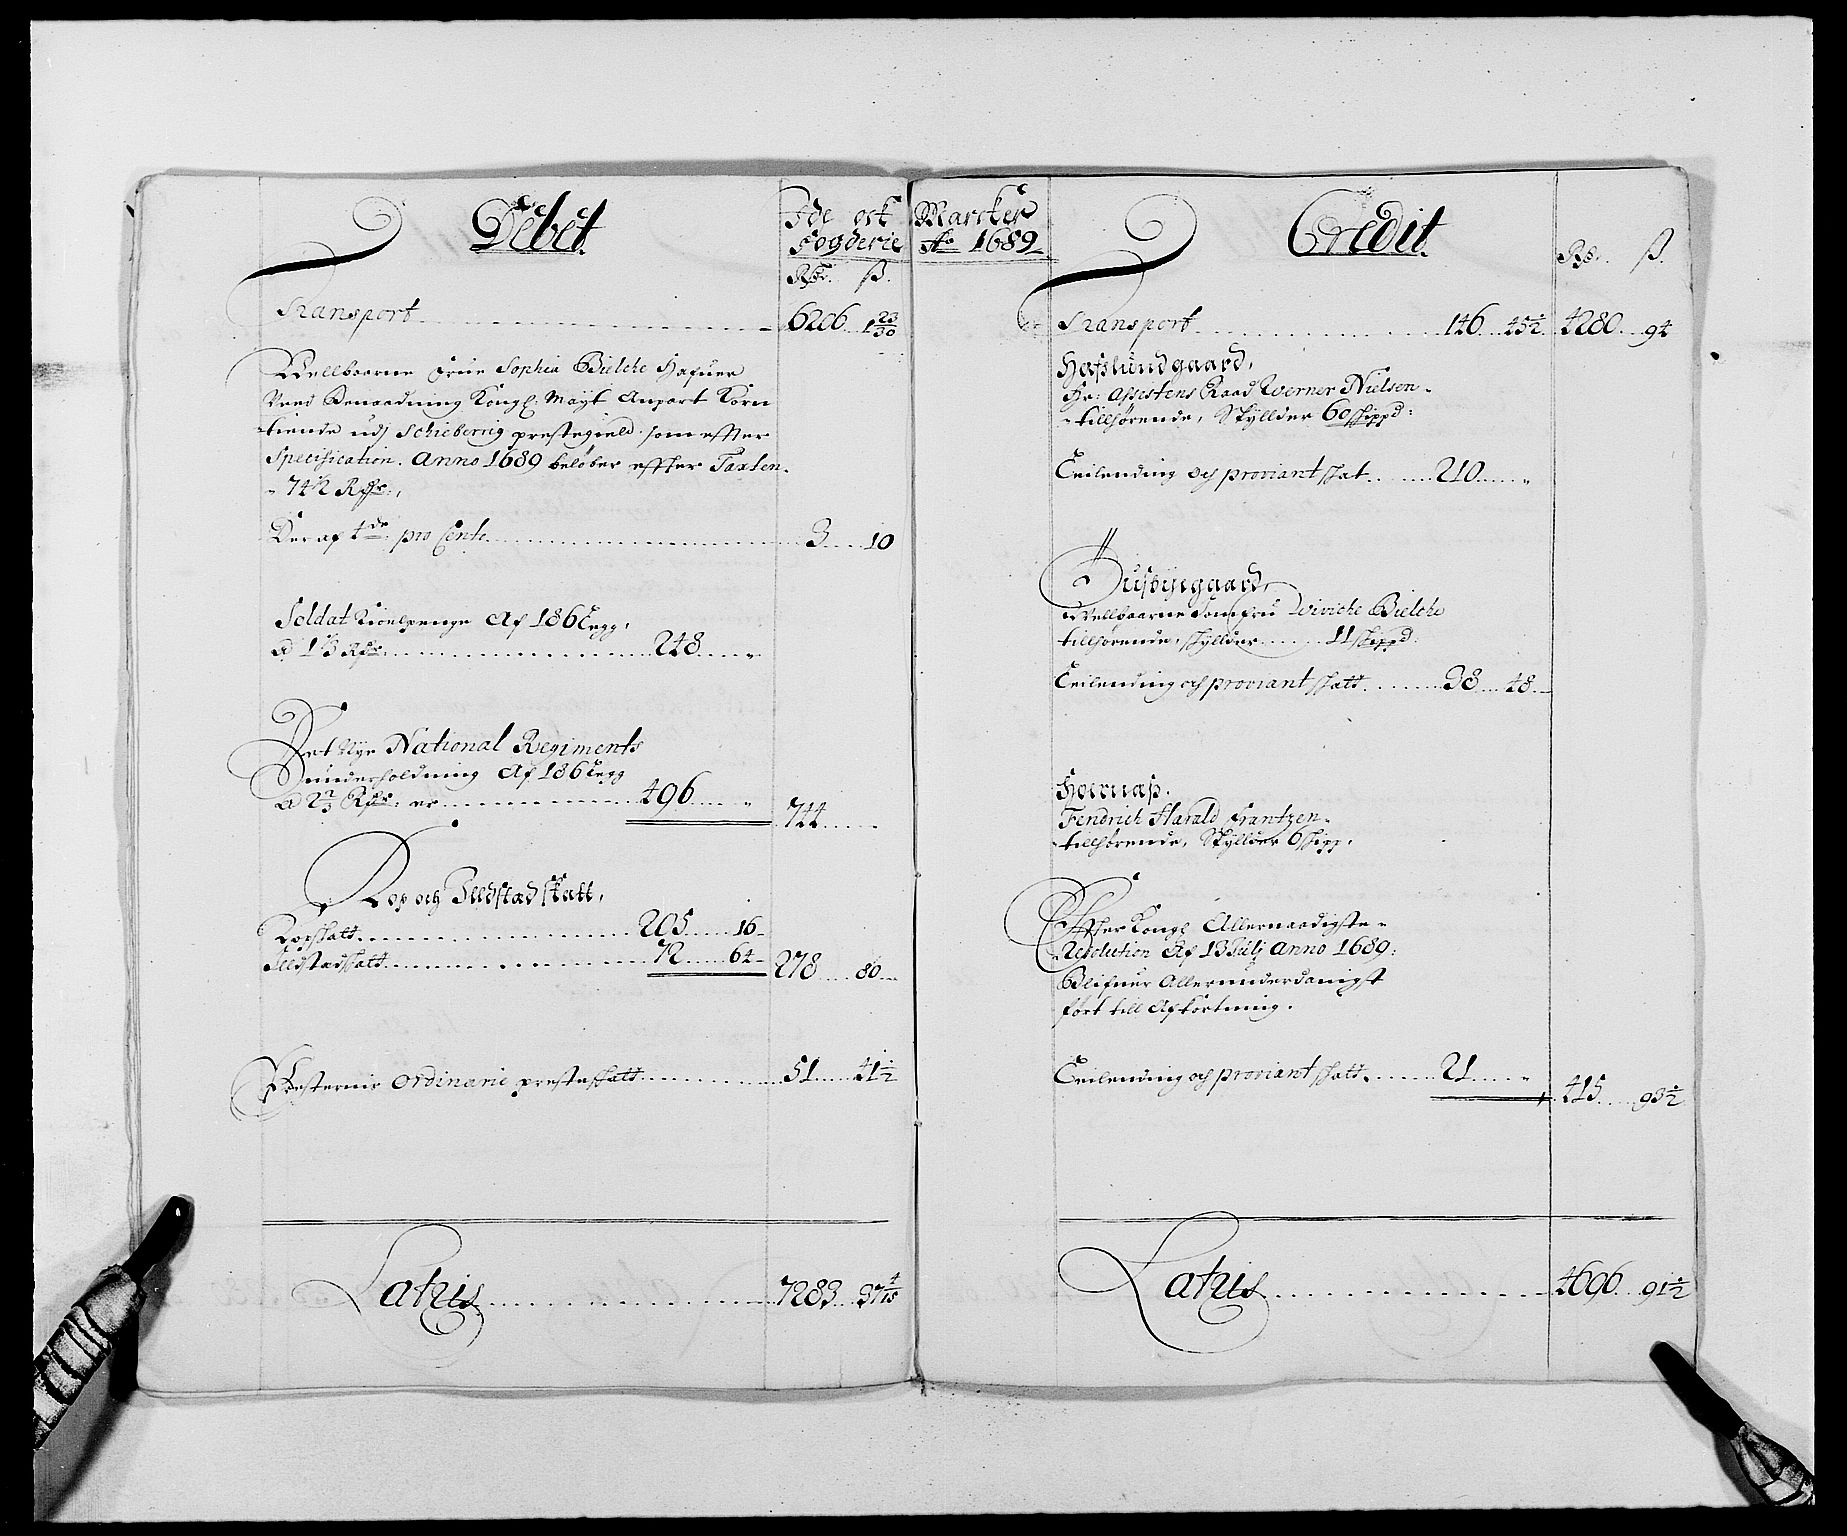 Debet
Ide och
Fogderie
Rdr. ß.
Transport 6206 1 23/30
Wellbaarne Frue Sophia Bielche Hafuer
Ved Benaadning Kongl: Mayt Anpart Korn
tiende udj Schieberrig prestegield som effter
Specification. Anno 1689 beløber effter Taxten
74½ Rdr.,
Der af 4de pro Cento 3 10
Soldat Kiolepenge Af 186 Legg,
a 1⅓ Rdr 248 "
Det Nye National Regiments
underholdning Af 186 Legg
a 2⅔ Rdr: er 496 " 744
Rop och Jlldstædskatt,
Ropskatt 205 16
Jlldstædskatt 72 64 278 80
Presternis Ordinarie presteskatt 51 41½
Latris 7283 37 4/15
Marcker
Ao 1689
Credit
Rdr. ß.
Transport 146 45½ 4280 94
Hafslundgaard,
Hr: Assestens Raad Werner Nielsen
tillhørende, Skyllder 60 skippd:
Leilending och proviant skat 210 "
Husbyegaard,
Wellbaarne Jomfru Wiviche Bielche
tillhørende, skyllder 11 skippd:
Leilending och proviant skatt 38 48
Hoernæs.
Fendrich Harald Frantzen
tillhørende, Skyllder 6 skipp.
Effter Kongl Allernaadigste
Resolution Af 13 Julj Anno 1689:
Blifuer Allerunderdanigst
ført till Afkortning.
Leilending och proviant skatt 21 " 415 93½
Latris 4696 91½